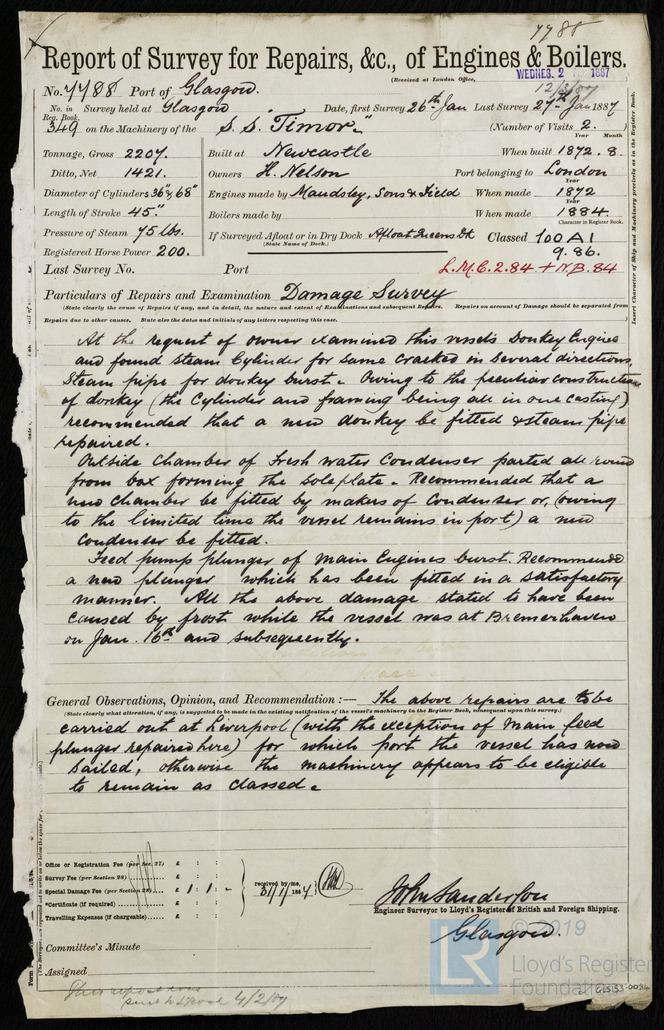 7788
Report of Survey for Repairs, &c., of Engines & Boilers.
(Received at London Office, WEDNES. 2 1887
12/2/87
No. 7788 Port of Glasgow.
No. in Reg. Book. Survey held at Glasgow Date, first Survey 26th Jan Last Survey 27th Jan 1887
349 on the Machinery of the S.S. "Timor" (Number of Visits 2.
Tonnage, Gross 2207. Built at Newcastle When built 1872. 8.
Year Month
Ditto, Net 1421. Owners H. Nelson Port belonging to London
Diameter of Cylinders 36" & 68" Engines made by Maudslay, Sons & Field When made 1872
Year
Length of Stroke 45" Boilers made by When made 1884.
Year
Pressure of Steam 75 lbs. If Surveyed Afloat or in Dry Dock Afloat Queens Dk Classed 100 A1
(State Name of Dock.) Character in Register Book.
Registered Horse Power 200. 9. 86.
Last Survey No. Port L.M.C. 2.84 + N.B. 84
Particulars of Repairs and Examination Damage Survey
(State clearly the cause of Repairs if any, and in detail, the nature and extent of Examinations and subsequent Repairs. Repairs on account of Damage should be separated from
Repairs due to other causes. State also the dates and initials of any letters respecting this case.
At the request of owner examined this vessels Donkey Engine
and found steam Cylinder for same cracked in several directions,
Steam pipe for donkey burst. Owing to the peculiar construction
of donkey (the Cylinder and framing being all in one casting)
recommended that a new donkey be fitted & steam pipe
repaired.
Outside Chamber of Fresh water Condenser parted all round
from box forming the sole plate. Recommended that a
new Chamber be fitted by makers of Condenser or, (owing
to the limited time the vessel remains in port) a new
Condenser be fitted.
Feed pump plunger of main Engines burst. Recommended
a new plunger which has been fitted in a satisfactory
manner. All the above damage stated to have been
caused by frost while the vessel was at Bremerhaven
on Jan. 16th and subsequently.
General Observations, Opinion, and Recommendation :— The above repairs are to be
(State clearly what alteration, if any, is suggested to be made in the existing notification of the vessel's machinery in the Register Book, consequent upon this survey.)
carried out at Liverpool (with the exception of main feed
plunger repaired here) for which port the vessel has now
sailed, otherwise the machinery appears to be eligible
to remain as classed.
Office or Registration Fee (per Sec. 27) £ : :
Survey Fee (per Section 28) £ : :
Special Damage Fee (per Section 28) £ 1 : 1 : - received by me, 31/1/1887
*Certificate (if required) £ : :
Travelling Expenses (if chargeable) £ : :
John Sanderson
Engineer Surveyor to Lloyd's Register of British and Foreign Shipping.
Glasgow.
Committee's Minute
Assigned
This report was
sent to L'pool 4/2/87
Insert Character of Ship and Machinery precisely as in the Register Book.
© 2019
LR
Lloyd's Register
Foundation